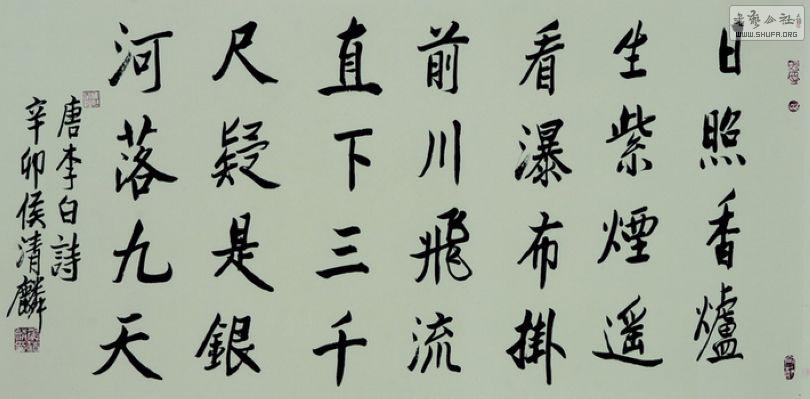 日照香爐
生紫煙遥
看瀑布掛
前川飛流
直下三千
尺疑是銀
河落九天
唐李白詩
辛卯侯清麟
书艺公社
WWW.SHUFA.ORG